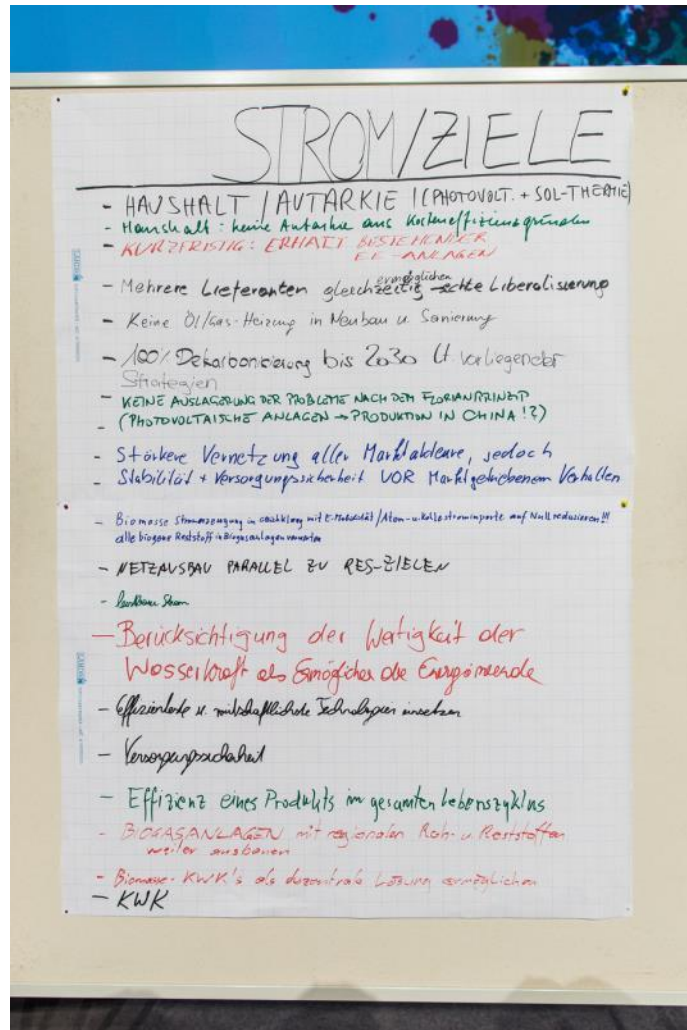 STROM/ZIELE
- HAUSHALT / AUTARKIE / (PHOTOVOLT. + SOL-THERMIE)
- Haushalt: keine Autarkie aus Kosteneffizienzgründen
- KURZFRISTIG: ERHALT BESTEHENDER
EE-ANLAGEN
- Mehrere Lieferanten gleichzeitig ermöglichen echte Liberalisierung
- Keine Öl/Gas-Heizung in Neubau u. Sanierung
- 100% Dekarbonisierung bis 2030 lt. vorliegender
Strategien
- KEINE AUSLAGERUNG DER PROBLEME NACH DEM FLORIANPRINZIP
- (PHOTOVOLTAISCHE ANLAGEN → PRODUKTION IN CHINA!?)
- Stärkere Vernetzung aller Marktakteure, jedoch
- Stabilität + Versorgungssicherheit VOR Marktgetriebenem Verhalten
- Biomasse Stromerzeugung in mit E-Mobilität / Atom- u. Kohlestromimporte auf Null reduzieren!!!
alle biogene Reststoff in Biogasanlagen verwerten
- NETZAUSBAU PARALLEL ZU RES-ZIELEN
- Strom
- Berücksichtigung der Wertigkeit der
Wasserkraft als Ermöglicher der Energiewende
- Effizienteste u. wirtschaftlichste Technologien einsetzen
- Versorgungssicherheit
- Effizienz eines Produkts im gesamten Lebenszyklus
- BIOGASANLAGEN mit regionalen Roh- u. Reststoffen
weiter ausbauen
- Biomasse-KWK's als dezentrale Lösung ermöglichen
- KWK